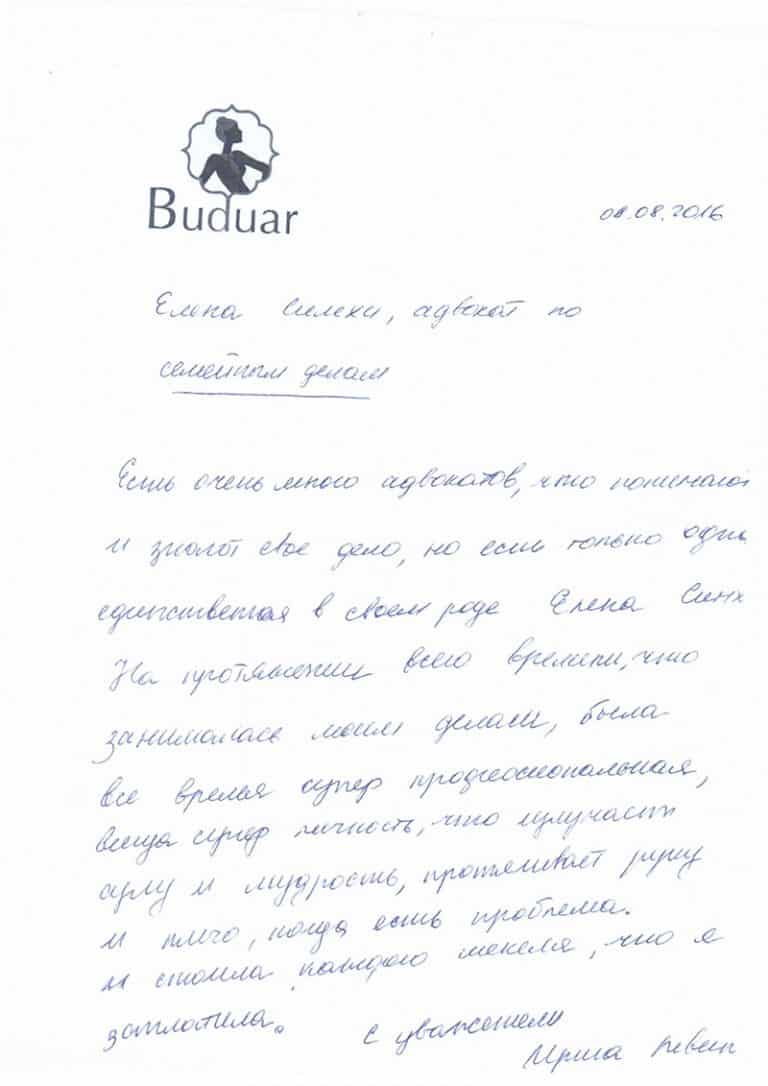 Buduar
08.08.2016
Елена Силехи, адвокат по
семейным делам
Есть очень много адвокатов, что понимают
и знают свое дело, но есть только одна
единственная в своем роде Елена Синх
На протяжении всего времени, что
занималась моим делам, была
все время супер профессиональная,
супер личность, что излучает
силу и мудрость, протягивает руку
и плечо, когда есть проблема.
и стоила каждого шекеля, что я
заплатила.
с уважением
Ирина Левин